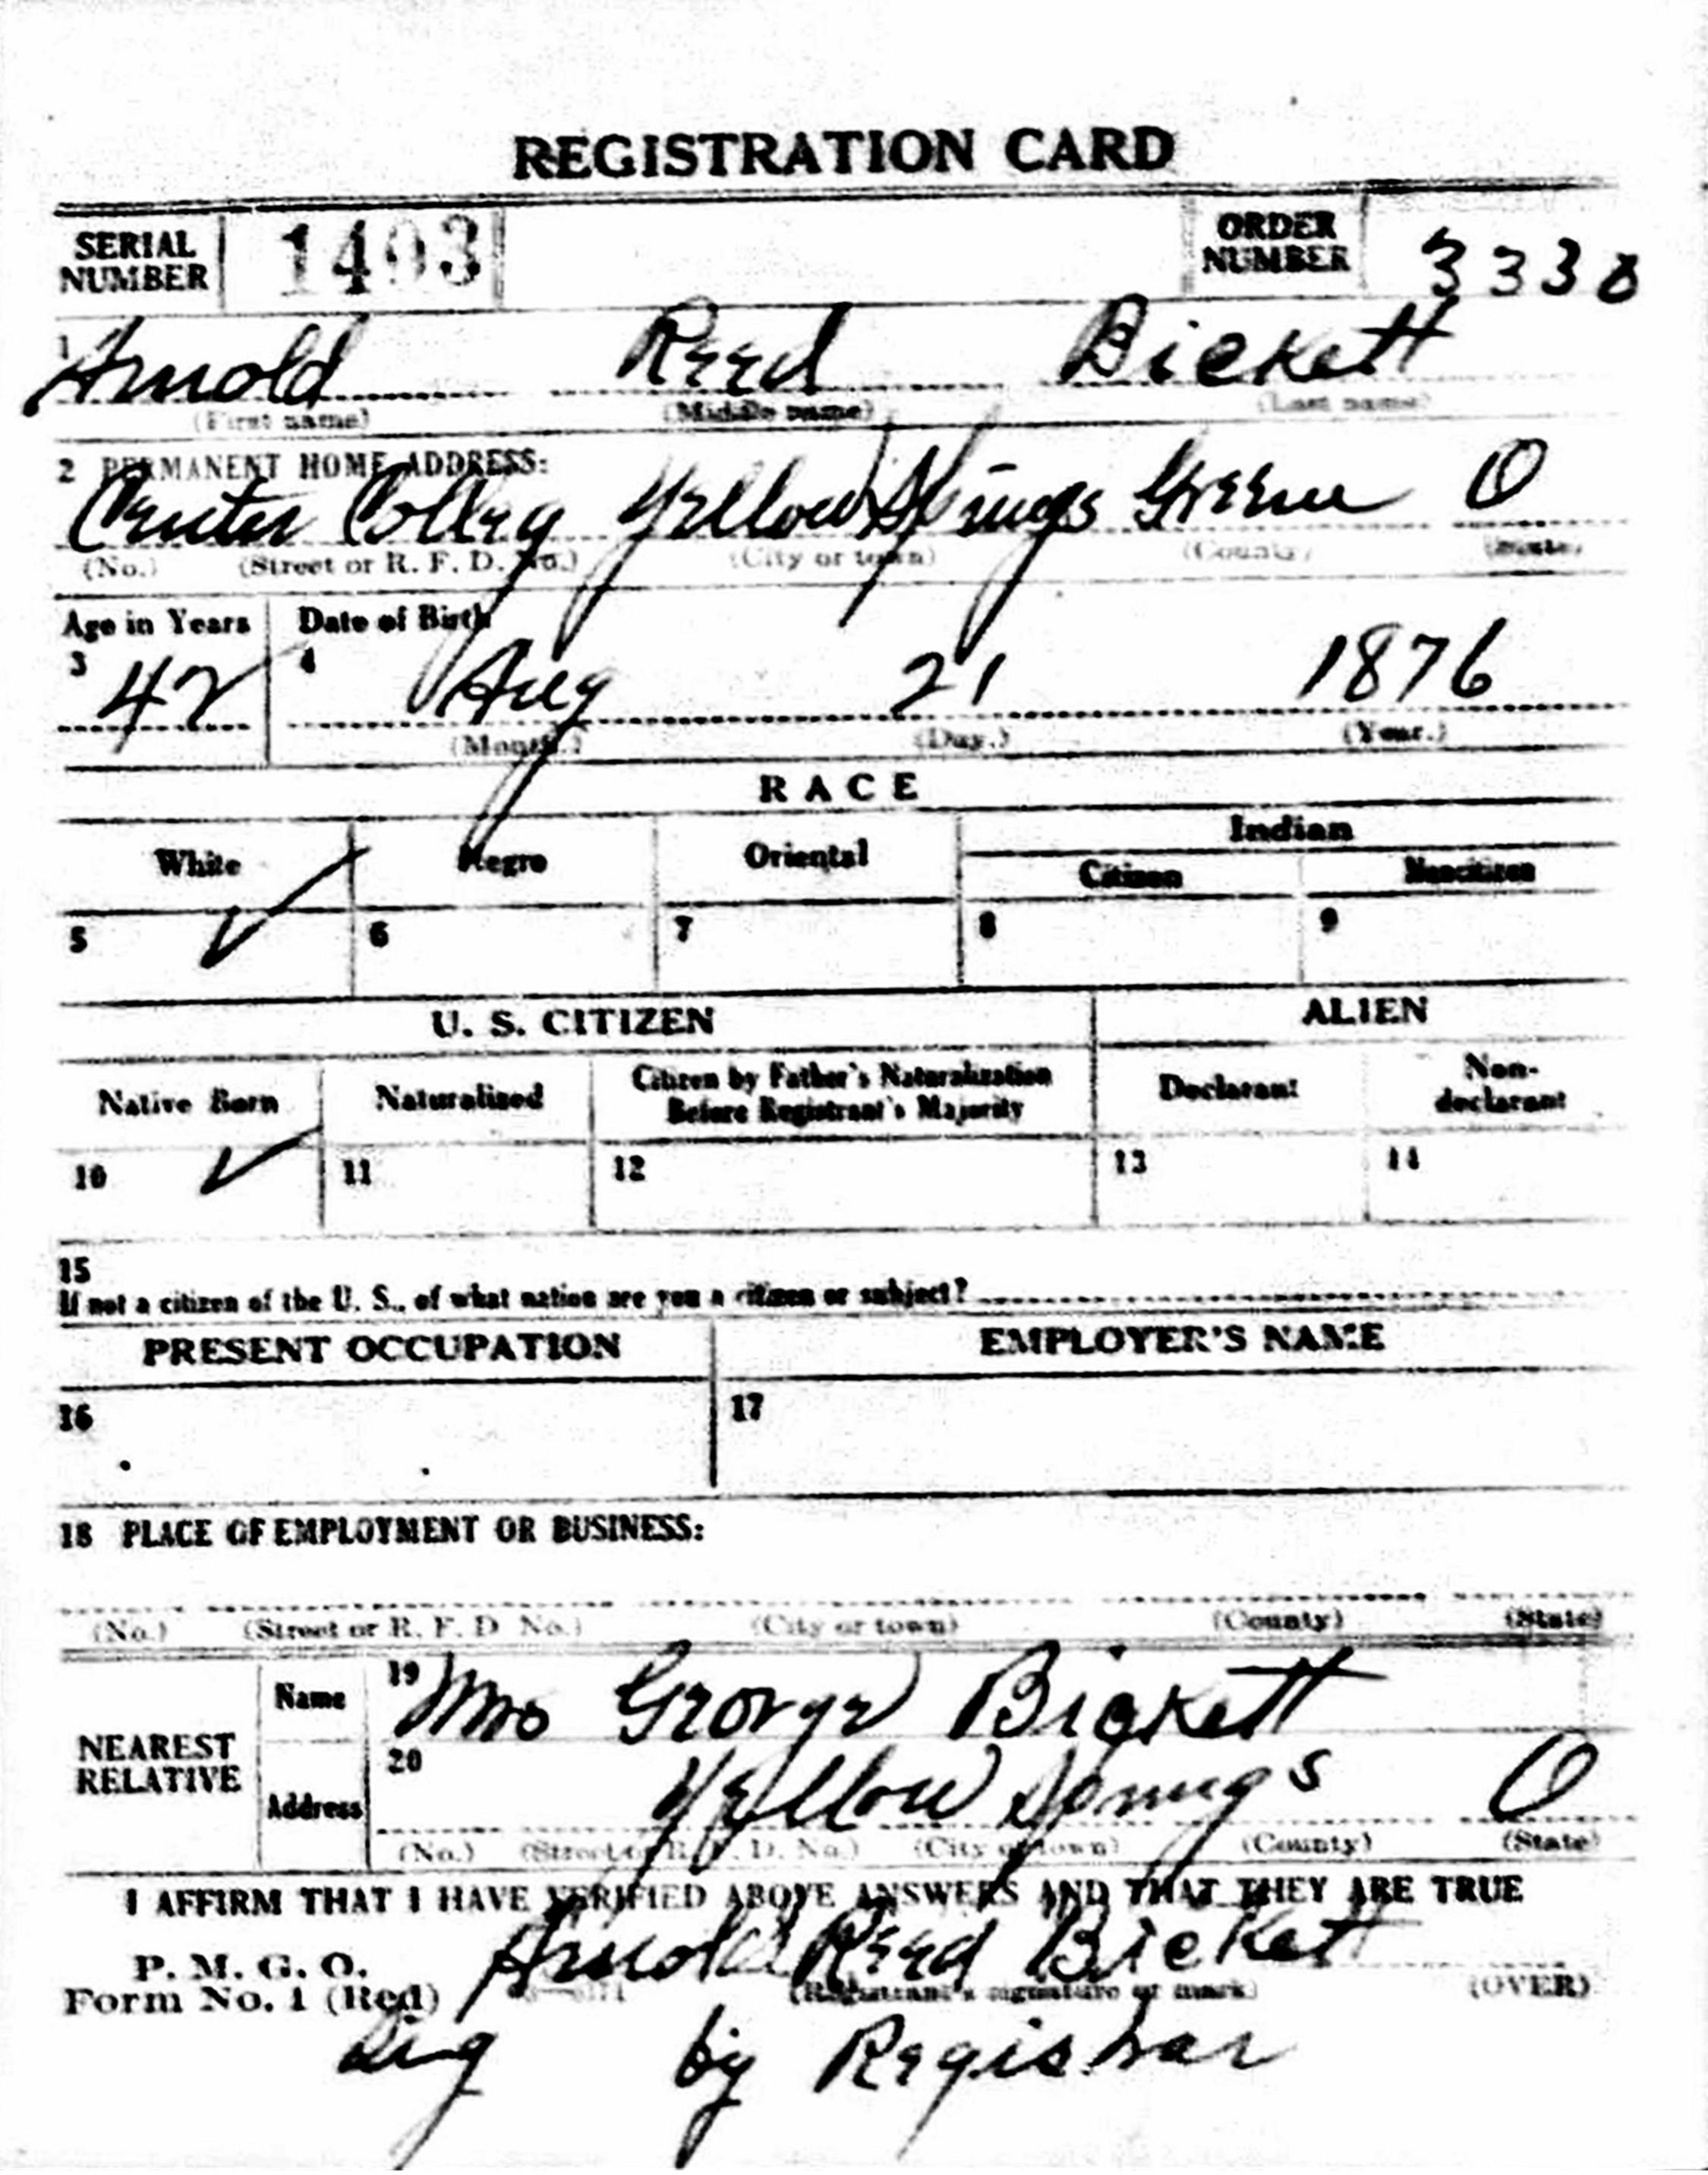 REGISTRATION CARD
SERIAL NUMBER 1403 ORDER NUMBER 3330
1 Arnold Reed Bickett
(First name) (Middle name) (Last name)
2 PERMANENT HOME ADDRESS:
Center Colleg Yellow Springs Greene O
(No.) (Street or R. F. D. No.) (City or town) (County) (State)
Age in Years Date of Birth
3 42 4 Aug 21 1876
(Month.) (Day.) (Year.)
RACE
White Negro Oriental Indian
Citizen Noncitizen
5 ✓ 6 7 8 9
U. S. CITIZEN ALIEN
Native Born Naturalized Citizen by Father's Naturalization Before Registrant's Majority Declarant Non-declarant
10 ✓ 11 12 13 14
15
If not a citizen of the U. S., of what nation are you a citizen or subject?
PRESENT OCCUPATION EMPLOYER'S NAME
16 17
18 PLACE OF EMPLOYMENT OR BUSINESS:
(No.) (Street or R. F. D No.) (City or town) (County) (State)
NEAREST RELATIVE Name 19 Mrs George Bickett
Address 20 Yellow Springs O
(No.) (Street or R. F. D. No.) (City or town) (County) (State)
I AFFIRM THAT I HAVE VERIFIED ABOVE ANSWERS AND THAT THEY ARE TRUE
P. M. G. O.
Form No. 1 (Red) Arnold Reed Bickett
(Registrant's signature or mark) (OVER)
by Registrar